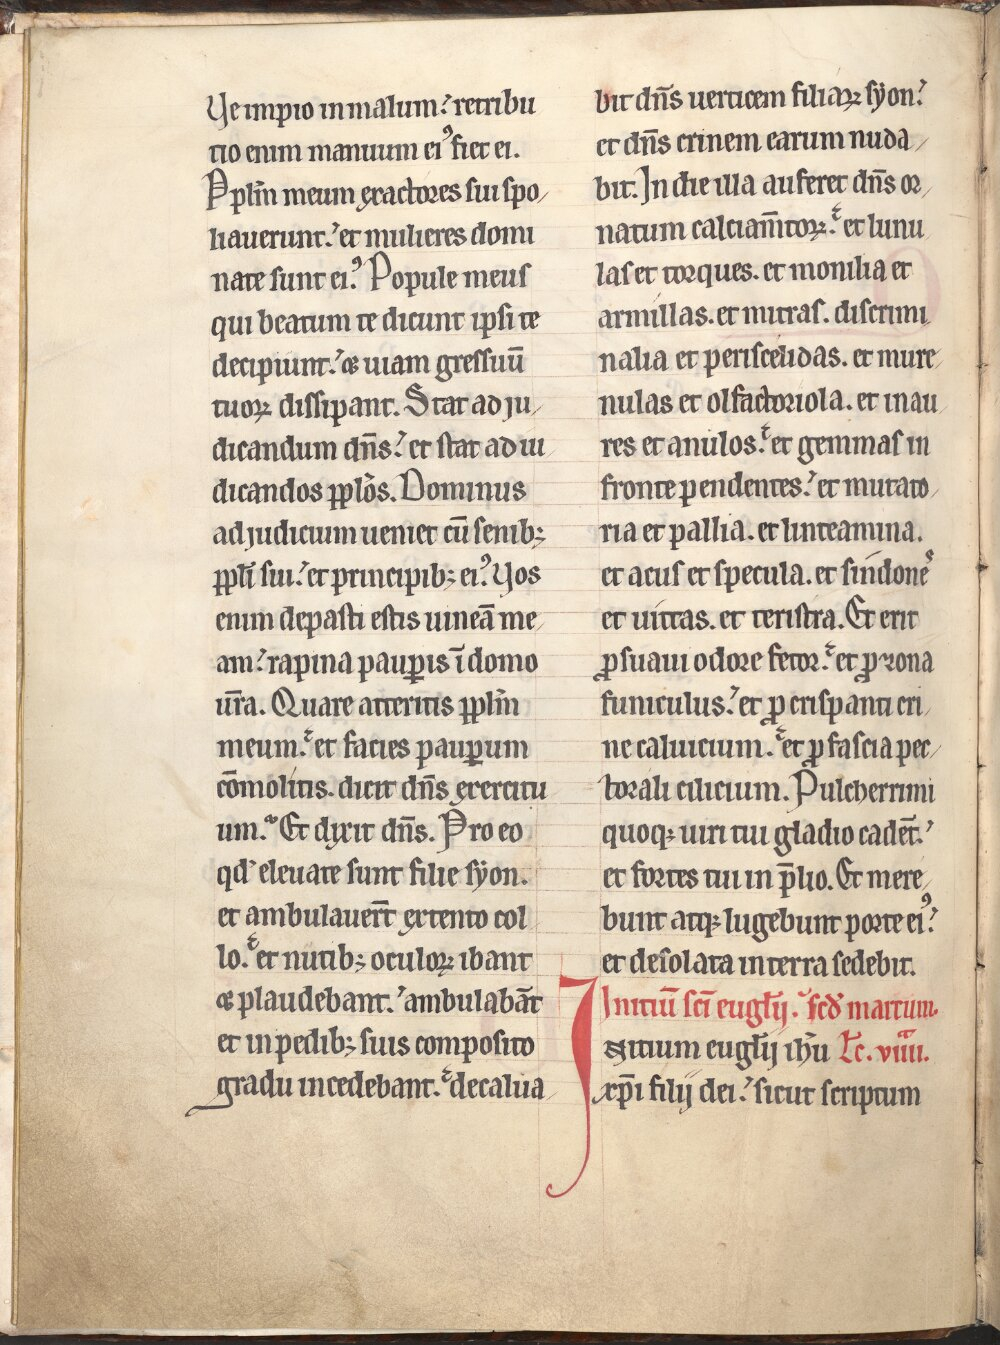 Ve impio in malum. retribu
tio enim manuum ei⁹ fiet ei.
Pplm̄ meum exactores sui spo/
liauerunt. et mulieres domi
nate sunt ei⁹. Popule meus
qui beatum te dicunt ipsi te
decipiunt. & uiam gressuū
tuoꝝ dissipant. Stat ad ju/
dicandum dn̄s. et stat ad iu/
dicandos pplōs. Dominus
ad judicium ueniet cū senib;
ppłi sui. et principib; ei⁹. Vos
enim depasti estis uineā me/
am. rapina paupis ī domo
ur̄a. Quare atteritis pplm̄
meum. et facies paupum
cōmolitis. dicit dn̄s exercitu/
um. Et dixit dn̄s. Pro eo
qd' eleuate sunt filie sẏon.
et ambulauer̄t extento col
lo. et nutib; oculoꝝ ibant
& plaudebant. ambulabāt
et in pedib; suis composito
gradu incedebant. decalua/
bit dn̄s uerticem filiaꝝ sẏon.
et dn̄s crinem earum nuda/
bit. In die illa auferet dn̄s or/
natum calciam̄toꝝ. et lunu/
las et torques. et monilia et
armillas. et mitras. discrimi/
nalia et periscelidas. et mure/
nulas et olfactoriola. et inau/
res et anulos. et gemmas in
fronte pendentes. et mutato/
ria et pallia. et linteamina.
et acus et specula. et sindone⁹
et uittas. et teristra. Et erit
ꝓ suaui odore fetor. et ꝓ zona
funiculus. et ꝓ crispanti cri/
ne caluicium. et ꝓ fascia pec/
torali cilicium. Pulcherrimi
quoqꝫ uiri tui gladio cadēt.
et fortes tui in p̄lio. Et mere/
bunt atqꝫ lugebunt porte ei⁹.
et desolata in terra sedebit.
Initiū sc̄i eugłij. scd̄ marcum.
Initium eugłij ihū Łc. viiii.
xp̄i filij dei. sicut scriptum